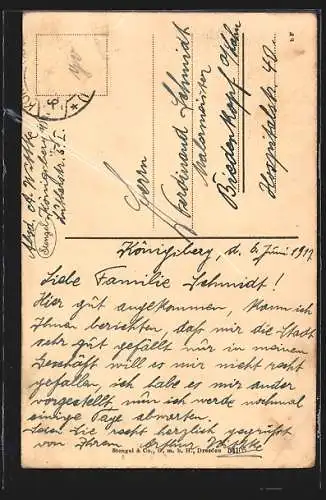 Abs. A. Wittke
Stengel Königsberg Pr.
Herrn
Ferdinand Schmidt
Malermeister
Biedenkopf Lahn
Hospitalstr. 40
Königsberg, d. 6. Juni 1917
Liebe Familie Schmidt!
Hier gut angekommen, kann ich
Ihnen berichten, daß mir die Stadt
sehr gut gefällt nur in meinen
Geschäft will es mir nicht recht
gefallen, ich habe es mir ander
vorgestellt nun ich werde nochmal
einige Tage abwarten.
Seien Sie recht herzlich gegrüßt
von Ihrem Arthur Wittke
Stengel & Co., G. m. b. H., Dresden